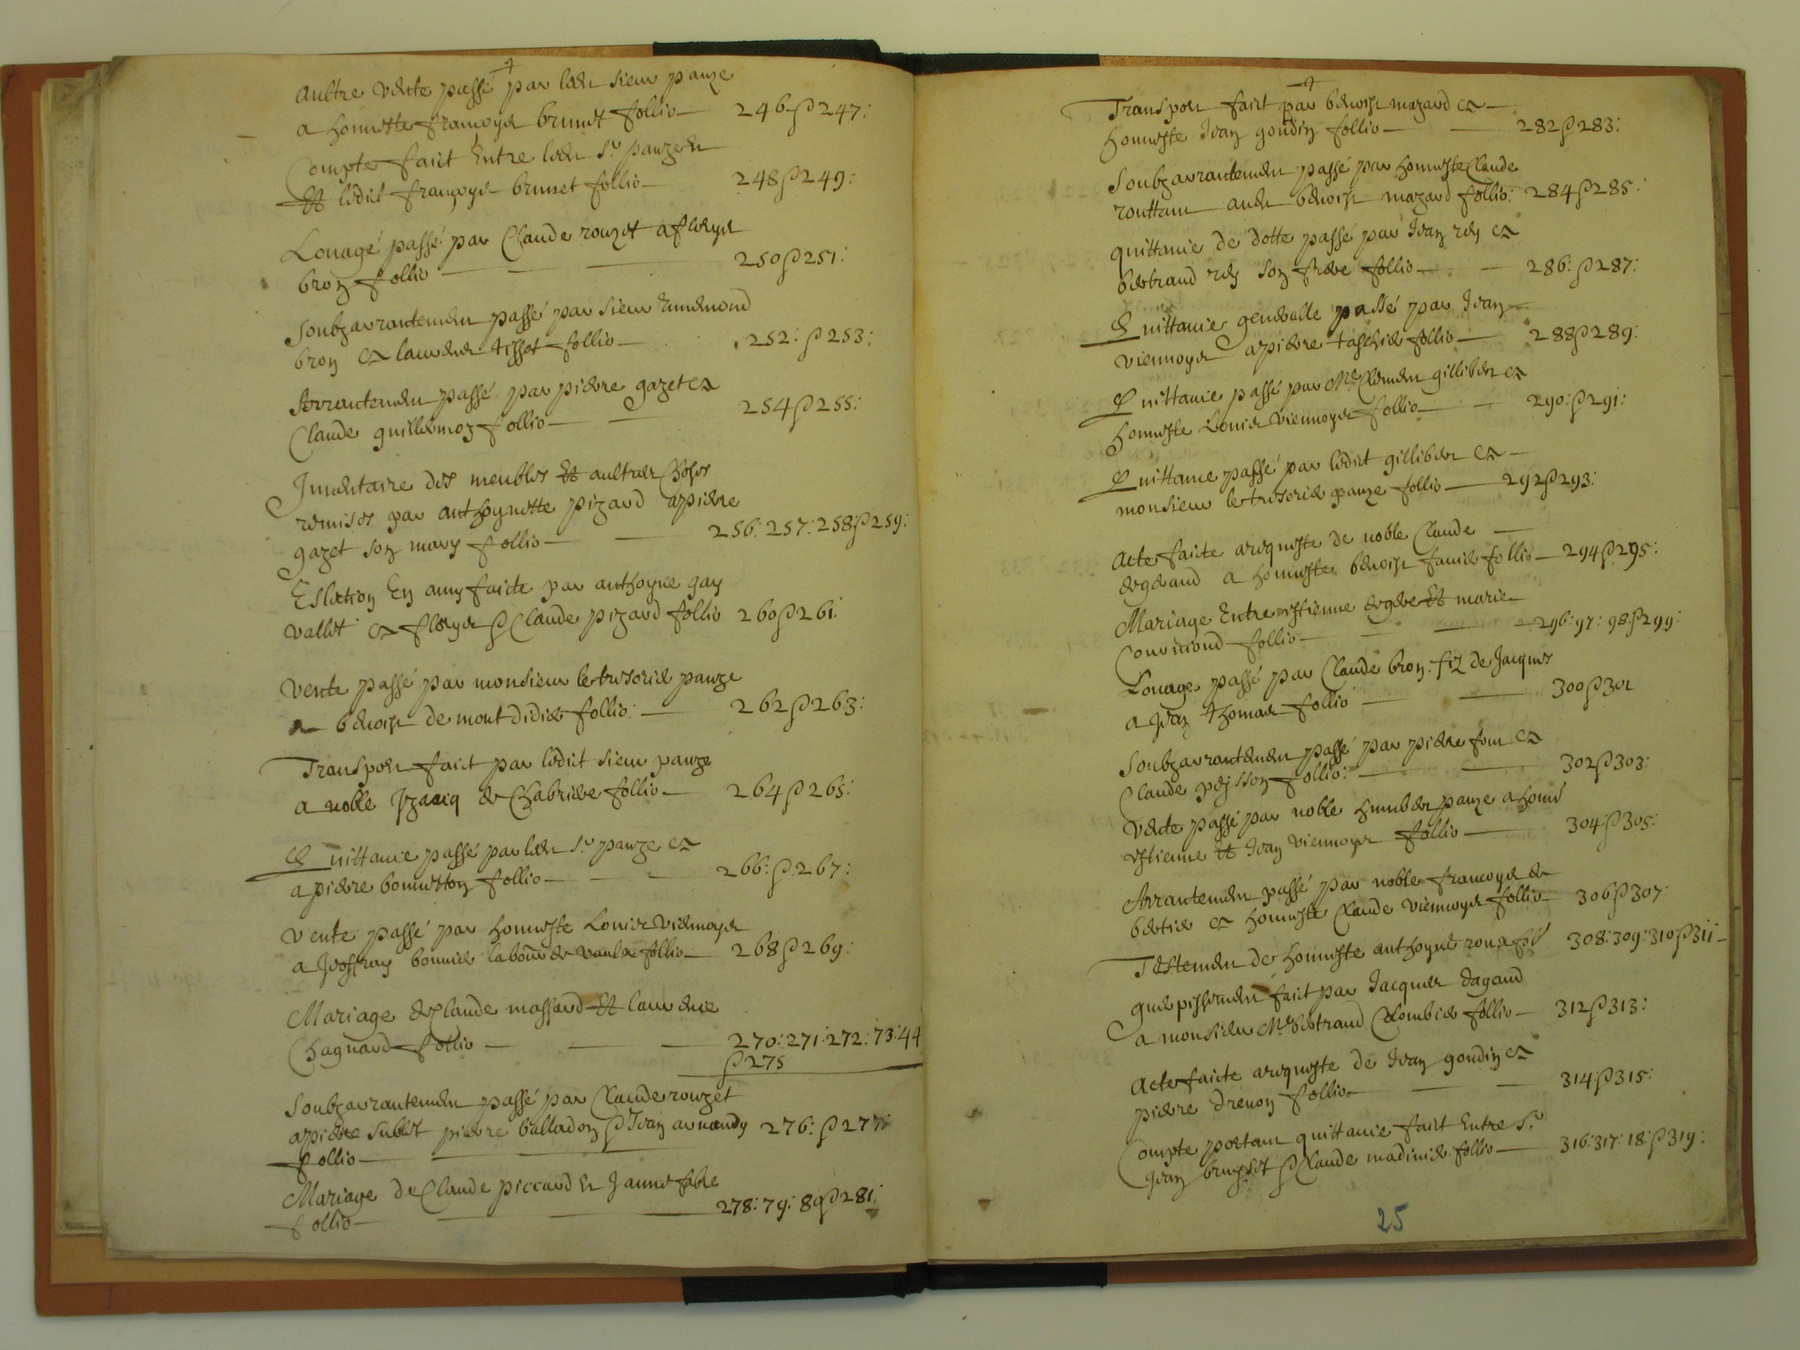 Aultre vente passé par led sieur panze
a honneste francoys brunet follio 246 & 247:
Compte faict Entre led Sr panze
Et ledict françoys brunet follio 248 & 249:
Louagé passé par Claude rouzet a
bron follio 250 & 251:
Soubzarrantement passé par sieur Ennemond
bron et laurens tisset follio 252: & 253:
Arrantement passé par pierre gazet et
Claude guillermoz follio 254 & 255:
Inventaire des meubles Et aultres choses
remises par anthoynette pizard a pierre
gazet son mary follio 256: 257: 258: & 259:
Eslection En amy faicte par anthoyne gay
vallet et & Claude pizard follio 260 & 261:
Vente passé par monsieur le tresorier panze
a benoist de montdidier follio: 262 & 263:
Transport faict par ledict sieur panze
a noble de Chabriere follio 264 & 265:
Quittance passé par led Sr panze et
a pierre follio 266: & 267:
Vente passé par honneste Louis Viennoys
a follio 268 & 269:
Mariage de Claude massard Et laurence
Chagnard follio 270: 271: 272: 73: 44
& 275
Soubzarrantement passé par Claude rouzet
a pierre sublet pierre balladon & Jean follio 276: & 277:
follio
Mariage de Claude piccard et Janne fabre
follio 278: 79: 80 & 281:
Transport faict par benoist mazard et
honneste Jean goudin follio 282 & 283:
Soubzarrantement passé par honneste Claude
aud benoist mazard follio: 284 & 285:
quittance de dotte passé par Jean rey et
bertrand rey son frere follio 286: & 287:
Quittance generalle passé par Jean
viennoys a pierre follio 288 & 289:
Quittance passé par Me Clement gillibert et
honneste Louis Viennoys follio 290: & 291:
Quittance passé par ledict gillibert et
monsieur le tresorier panze follio 292 & 293:
Acte faicte a requeste de noble Claude
a honneste benoist follio 294 & 295:
Mariage Entre estienne Et marie
follio 296: 97: 98 & 299:
Louage passé par Claude bron fiz de Jacques
a Jean thomas follio 300 & 301
Soubzarrantement passé par pierre et
Claude peysson follio: 302 & 303:
Vente passé par noble humbert panze a
estienne et Jean viennoys follio 304: & 305:
Arrantement passé par noble francoys de
et honneste Claude viennoys follio 306 & 307:
Testement de honneste anthoyne 308: 309: 310 & 311
guerpissement faict par Jacques dagand
a monsieur Me bertrand Colombier follio 312 & 313:
Acte faicte a requeste de Jean goudin et
pierre drenon follio 314 & 315:
Compte portant quittance faict Entre Sr
Jean bruyset & Claude madinier follio 316: 317: 18: & 319:
25